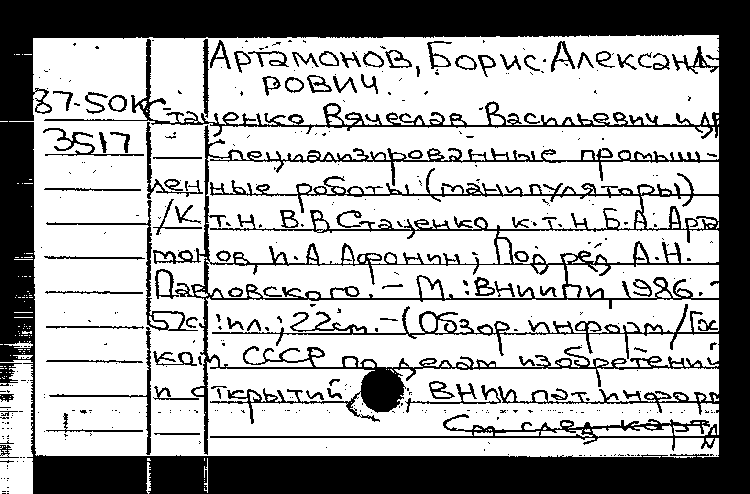 Артамонов, Борис Александ-
рович.
87-50К Стаценко, Вячеслав Васильевич и др
3517 Специализированные промыш-
ленные роботы (манипуляторы)
/К.т.н. В.В Стаценко, к.т.н Б.А. Арта
монов, И.А. Афонин; Под ред. А.Н.
Павловского. – М.: ВНИИПИ, 1986. -
57с.: ил.; 22см. – (Обзор. информ/Гос
ком. СССР по делам изобретений
и открытий, ВНИИ пат. информ
См след. карт